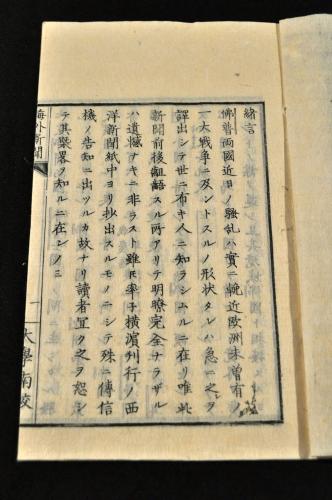 緒言
佛普両國近日ノ騒乱ハ實ニ輓近欧洲未曽有ノ
一大戦争ニ及ントスルノ形状タレハ急ニ之ヲ
譯出シテ世ニ布キ人ニ知ラシムルニ在リ唯此
新聞前後齟齬スル両アリテ明瞭完全ナラザル
ハ遺憾ナキニ非ラスト雖𪜈率子横濵刋行ノ西
洋新聞紙中ヨリ抄出スルモノニシテ殊ニ傳信
機ノ告知ニ出ツルカ故ナリ讀者冝ク之ヲ恕シ
テ其槩畧ヲ知ルニ在ンノミ
海外新聞
一
大學南校